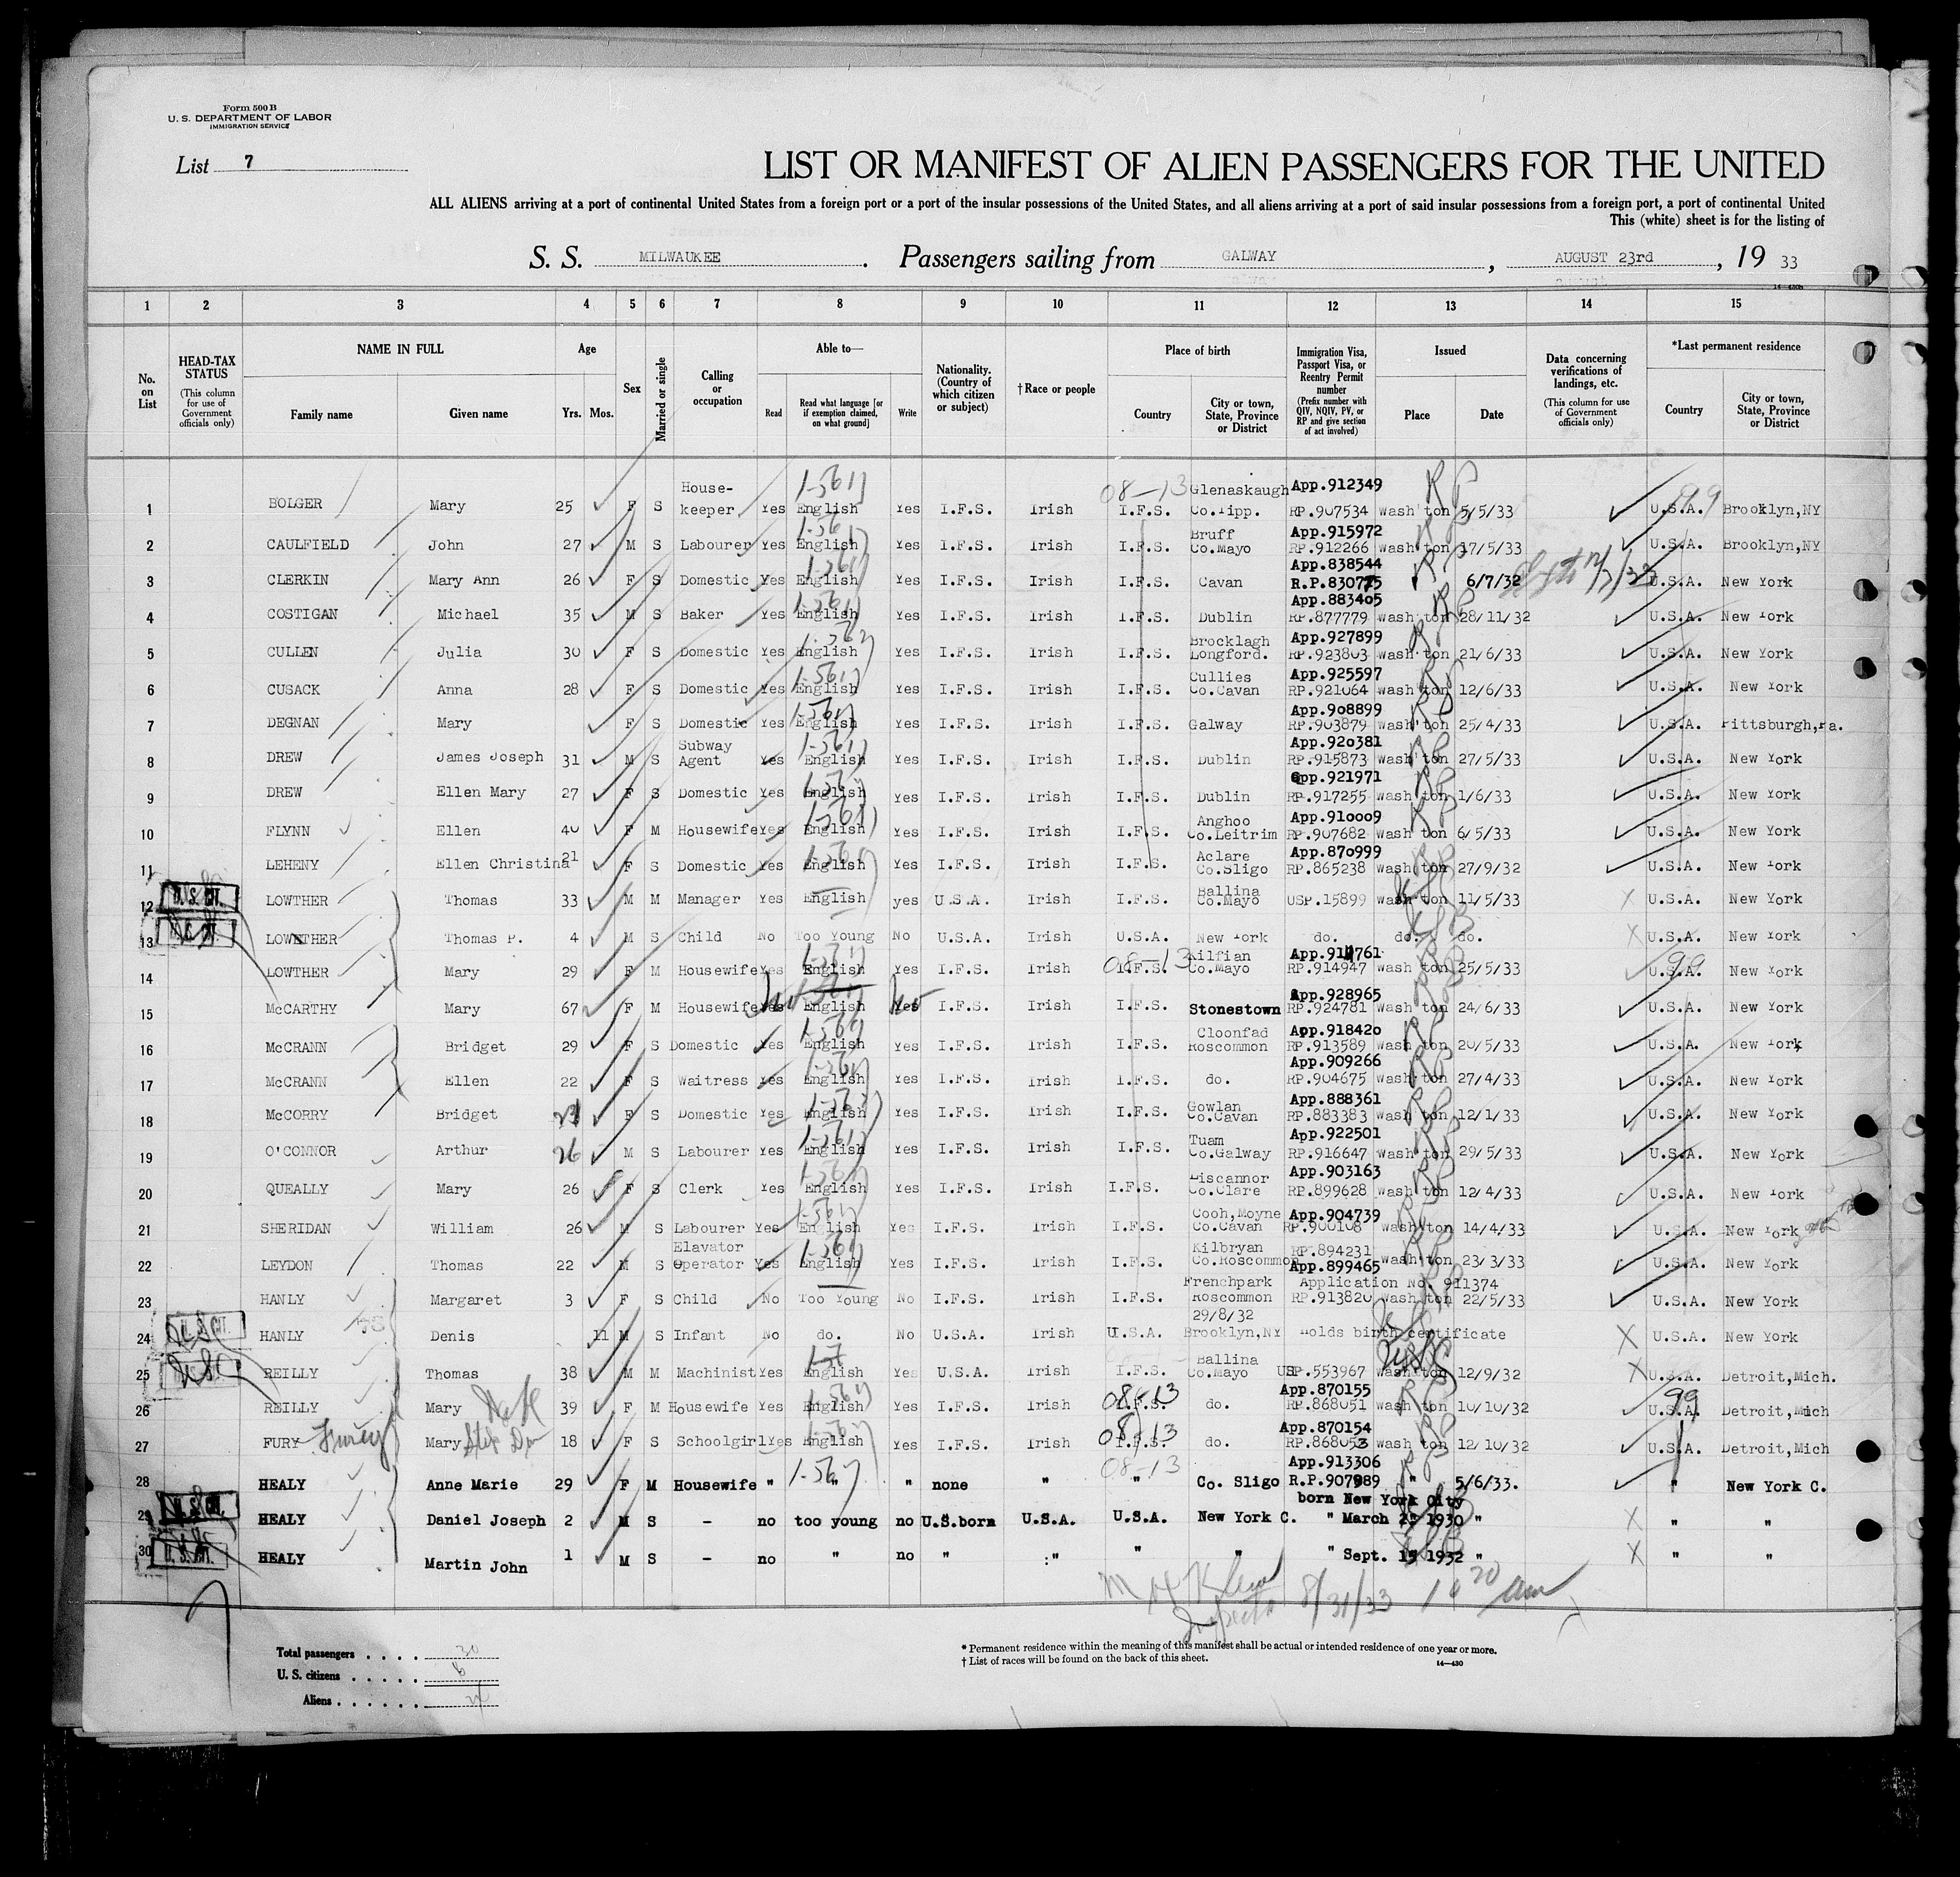 Form 500 B
U. S. DEPARTMENT OF LABOR
IMMIGRATION SERVICE
List 7
LIST OR MANIFEST OF ALIEN PASSENGERS FOR THE UNITED
ALL ALIENS arriving at a port of continental United States from a foreign port or a port of the insular possessions of the United States, and all aliens arriving at a port of said insular possessions from a foreign port, a port of continental United
This (white) sheet is for the listing of
S. S. MILWAUKEE. Passengers sailing from GALWAY, AUGUST 23rd, 19 33
1 2 3 4 5 6 7 8 9 10 11 12 13 14 15
No. on List
HEAD-TAX STATUS (This column for use of Government officials only)
NAME IN FULL Family name Given name
Age Yrs. Mos.
Sex
Married or single
Calling or occupation
Able to— Read Read what language [or if exemption claimed, on what ground] Write
Nationality. (Country of which citizen or subject)
† Race or people
Place of birth Country City or town, State, Province or District
Immigration Visa, Passport Visa, or Reentry Permit number (Prefix number with QIV, NQIV, PV, or RP and give section of act involved)
Issued Place Date
Data concerning verifications of landings, etc. (This column for use of Government officials only)
*Last permanent residence Country City or town, State, Province or District
1 BOLGER Mary 25 F S House-keeper Yes English Yes I.F.S. Irish I.F.S. Glenaskaugh Co.Tipp. App.912349 RP.907534 Wash'ton 5/5/33 U.S.A. Brooklyn,NY
2 CAULFIELD John 27 M S Labourer Yes English Yes I.F.S. Irish I.F.S. Bruff Co.Mayo App.915972 RP.912266 Wash'ton 17/5/33 U.S.A. Brooklyn,NY
3 CLERKIN Mary Ann 26 F S Domestic Yes English Yes I.F.S. Irish I.F.S. Cavan App.838544 R.P.830775 6/7/32 U.S.A. New York
4 COSTIGAN Michael 35 M S Baker Yes English Yes I.F.S. Irish I.F.S. Dublin App.883405 RP.877779 Wash'ton 28/11/32 U.S.A. New York
5 CULLEN Julia 30 F S Domestic Yes English Yes I.F.S. Irish I.F.S. Brocklagh Longford. App.927899 RP.923803 Wash'ton 21/6/33 U.S.A. New York
6 CUSACK Anna 28 F S Domestic Yes English Yes I.F.S. Irish I.F.S. Cullies Co.Cavan App.925597 RP.921064 Wash'ton 12/6/33 U.S.A. New York
7 DEGNAN Mary F S Domestic Yes English Yes I.F.S. Irish I.F.S. Galway App.908899 RP.903879 Wash'ton 25/4/33 U.S.A. Pittsburgh,Pa.
8 DREW James Joseph 31 M S Subway Agent Yes English Yes I.F.S. Irish I.F.S. Dublin App.920381 RP.915873 Wash'ton 27/5/33 U.S.A. New York
9 DREW Ellen Mary 27 F S Domestic Yes English Yes I.F.S. Irish I.F.S. Dublin App.921971 RP.917255 Wash'ton 1/6/33 U.S.A. New York
10 FLYNN Ellen 40 F M Housewife Yes English Yes I.F.S. Irish I.F.S. Anghoo Co.Leitrim App.910009 RP.907682 Wash'ton 6/5/33 U.S.A. New York
11 LEHENY Ellen Christina 21 F S Domestic Yes English Yes I.F.S. Irish I.F.S. Aclare Co.Sligo App.870999 RP.865238 Wash'ton 27/9/32 U.S.A. New York
12 LOWTHER Thomas 33 M M Manager Yes English yes U.S.A. Irish I.F.S. Ballina Co.Mayo USP.15899 Wash'ton 11/5/33 U.S.A. New York
13 LOWTHER Thomas P. 4 M S Child No Too Young No U.S.A. Irish U.S.A. New York do. do. do. U.S.A. New York
14 LOWTHER Mary 29 F M Housewife Yes English Yes I.F.S. Irish I.F.S. Kilfian Co.Mayo RP.914947 Wash'ton 25/5/33 U.S.A. New York
15 McCARTHY Mary 67 F M Housewife Yes English Yes I.F.S. Irish I.F.S. Stonestown App.928965 RP.924781 Wash'ton 24/6/33 U.S.A. New York
16 McCRANN Bridget 29 F S Domestic Yes English Yes I.F.S. Irish I.F.S. Cloonfad Roscommon App.918420 RP.913589 Wash'ton 20/5/33 U.S.A. New York
17 McCRANN Ellen 22 F S Waitress Yes English Yes I.F.S. Irish I.F.S. do. App.909266 RP.904675 Wash'ton 27/4/33 U.S.A. New York
18 McCORRY Bridget F S Domestic Yes English Yes I.F.S. Irish I.F.S. Gowlan Co.Cavan App.888361 RP.883383 Wash'ton 12/1/33 U.S.A. New York
19 O'CONNOR Arthur 26 M S Labourer Yes English Yes I.F.S. Irish I.F.S. Tuam Co.Galway App.922501 RP.916647 Wash'ton 29/5/33 U.S.A. New York
20 QUEALLY Mary 26 F S Clerk Yes English Yes I.F.S. Irish I.F.S. Liscannor Co.Clare App.903163 RP.899628 Wash'ton 12/4/33 U.S.A. New York
21 SHERIDAN William 26 M S Labourer Yes English Yes I.F.S. Irish I.F.S. Cooh,Moyne Co.Cavan App.904739 RP.900108 Wash'ton 14/4/33 U.S.A. New York
22 LEYDON Thomas 22 M S Elavator Operator Yes English Yes I.F.S. Irish I.F.S. Kilbryan Co.Roscommon RP.894231 App.899465 Wash'ton 23/3/33 U.S.A. New York
23 HANLY Margaret 3 F S Child No Too Young No I.F.S. Irish I.F.S. Frenchpark Roscommon Application No. 911374 RP.913820 Wash'ton 22/5/33 U.S.A. New York
24 HANLY Denis 11 M S Infant No do. No U.S.A. Irish U.S.A. 29/8/32 Brooklyn,NY Holds birth certificate U.S.A. New York
25 REILLY Thomas 38 M M Machinist Yes English Yes U.S.A. Irish I.F.S. Ballina Co.Mayo USP.553967 Wash'ton 12/9/32 U.S.A. Detroit,Mich.
26 REILLY Mary 39 F M Housewife Yes English Yes I.F.S. Irish I.F.S. do. App.870155 RP.868051 Wash'ton 10/10/32 U.S.A. Detroit,Mich
27 FURY Furey Mary 18 F S Schoolgirl Yes English Yes I.F.S. Irish I.F.S. do. App.870154 RP.868053 Wash'ton 12/10/32 U.S.A. Detroit,Mich
28 HEALY Anne Marie 29 F M Housewife " " " none " " Co. Sligo App.913306 R.P.907989 " 5/6/33. " New York C.
29 HEALY Daniel Joseph 2 M S - no too young no U.S.born U.S.A. U.S.A. New York C. born New York City " March 25 1930 " " "
30 HEALY Martin John 1 M S - no " no " :" " " " Sept. 15 1932 " " "
8/31/33 10 20 am
Total passengers . . . . 30
U. S. citizens . . . . . 6
Aliens . . . . . . 24
* Permanent residence within the meaning of this manifest shall be actual or intended residence of one year or more.
† List of races will be found on the back of this sheet.
14—430